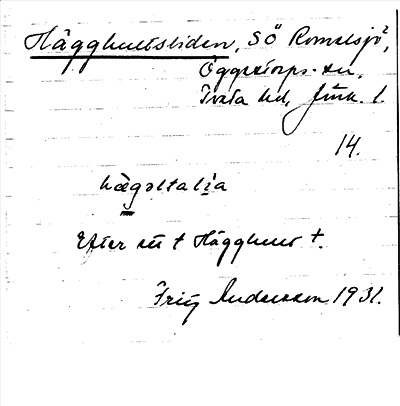 Hägghultsliden, SÖ Romelsjö,
Öggestorps sn,
Tveta hd, Jönk. l.
14.
hægəltalia
Efter ett † Hägghult †.
Fritz Andersson 1931.